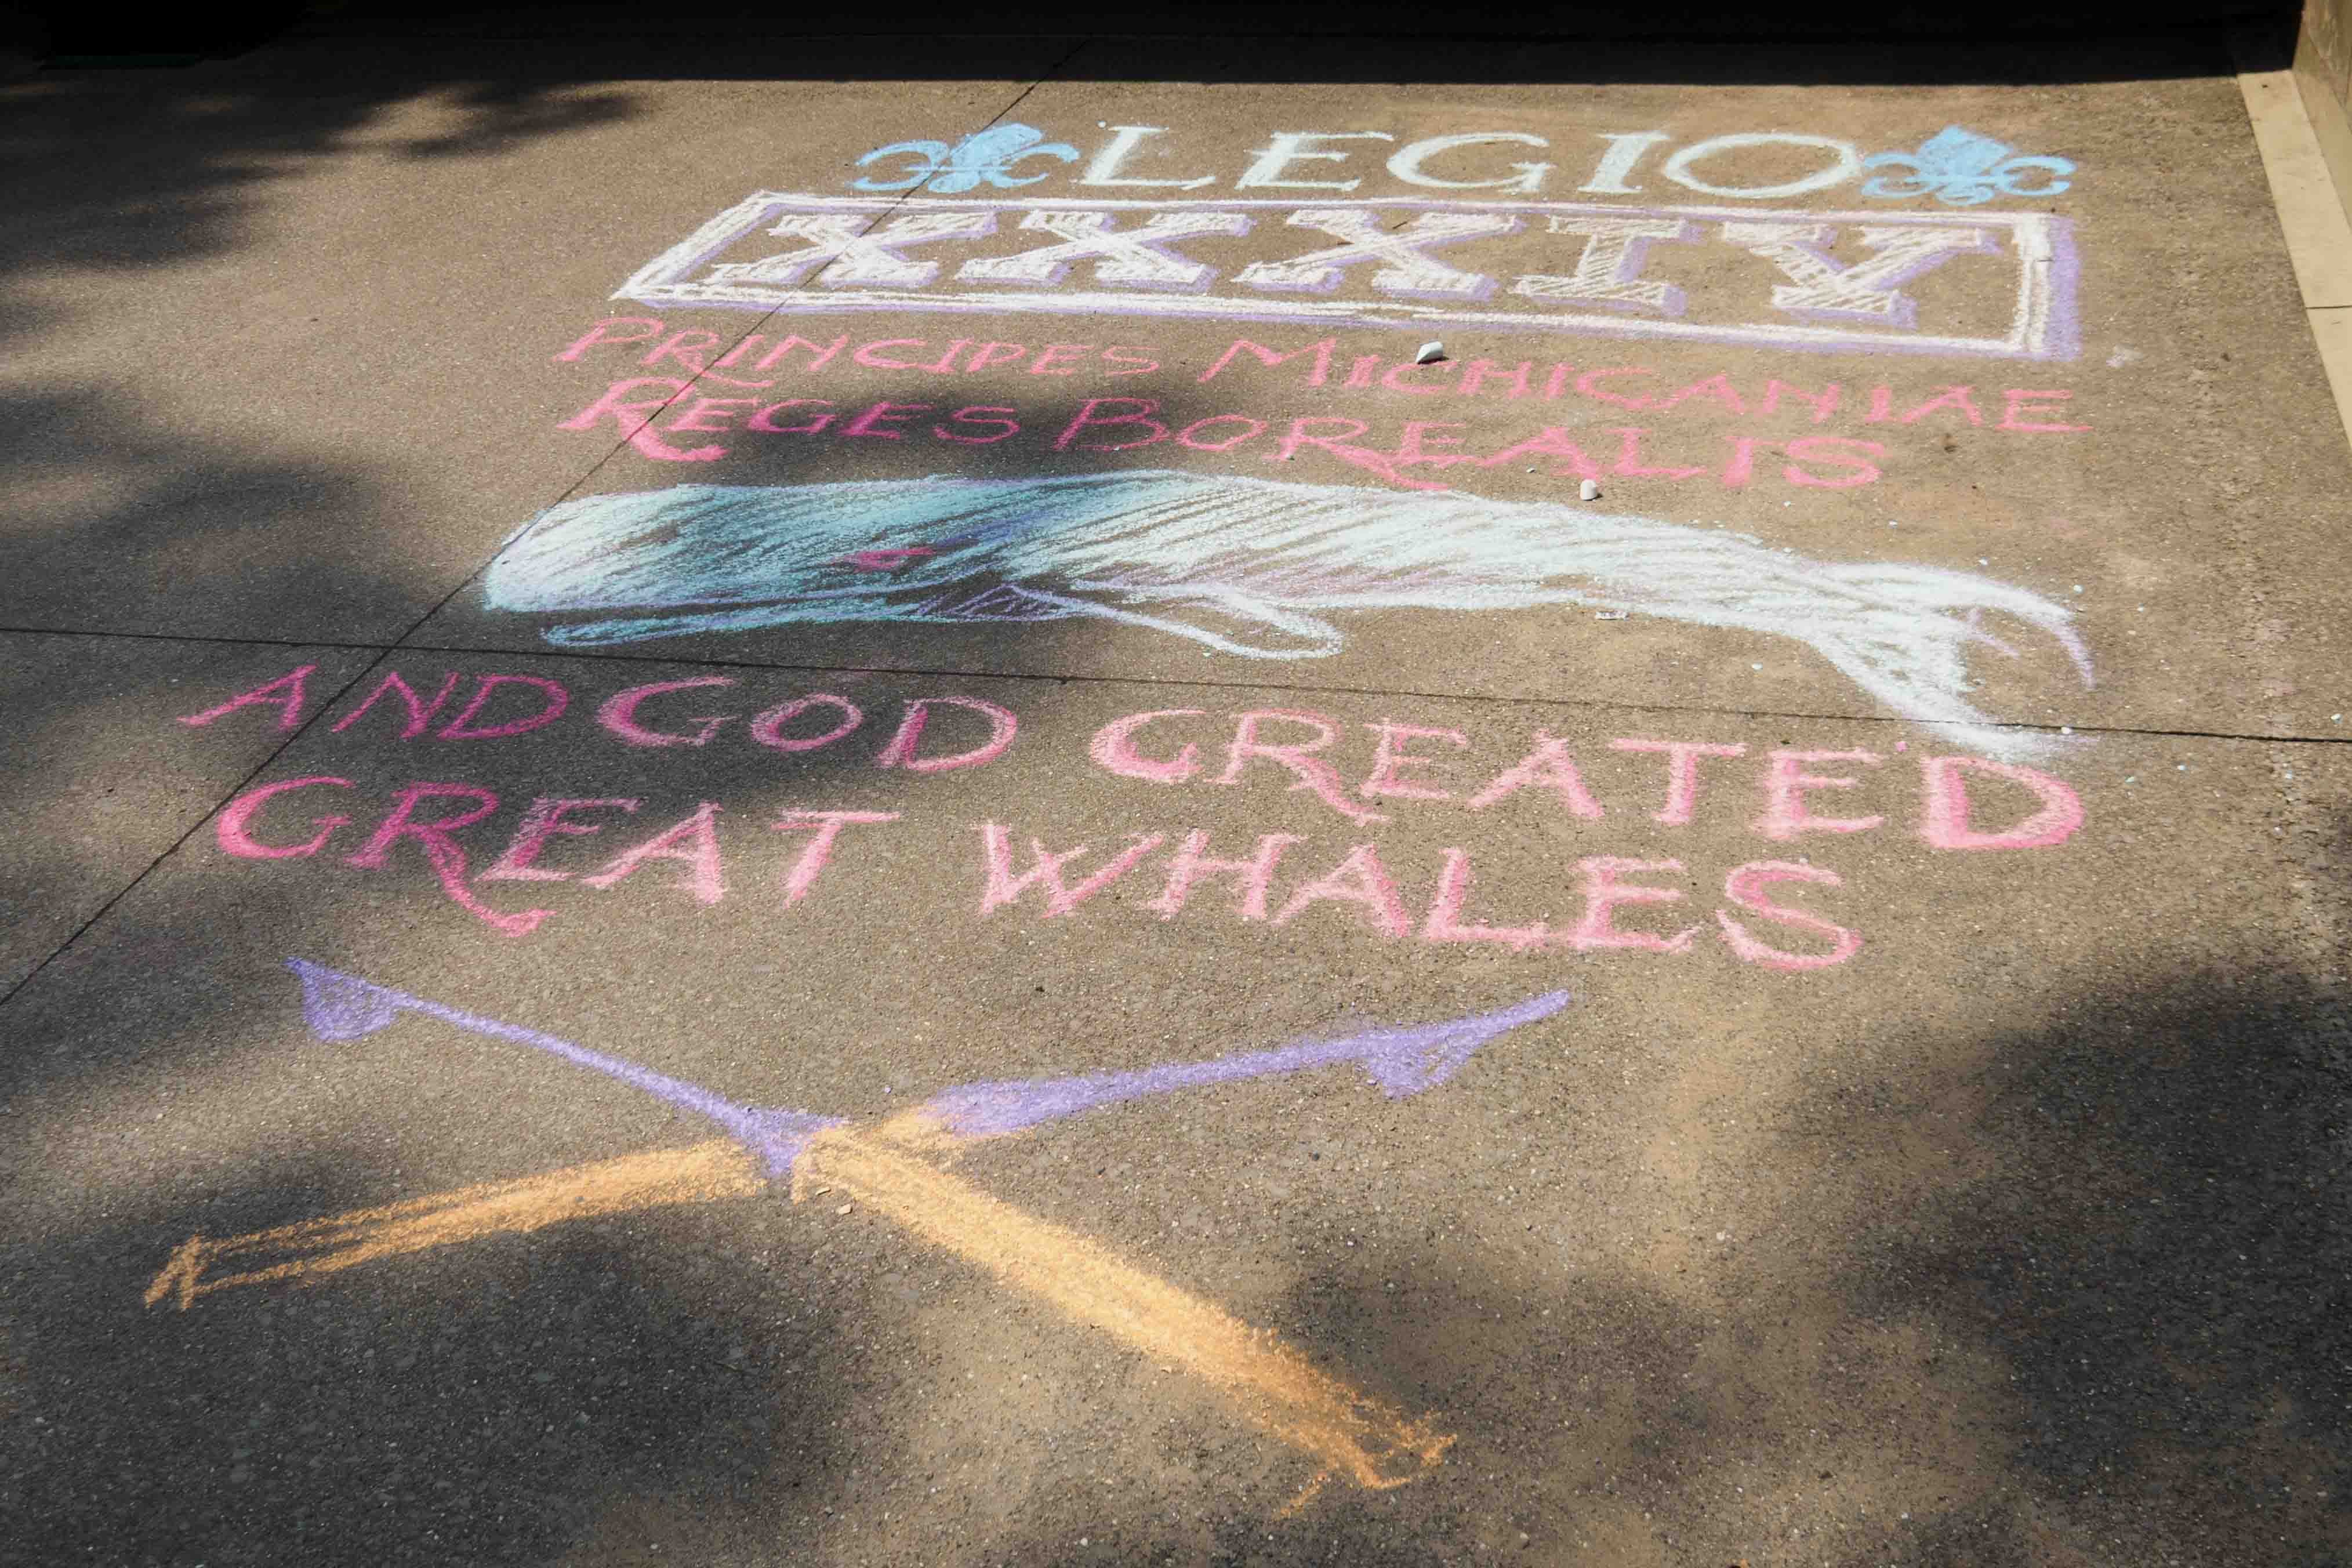 LEGIO
XXXIV
PRINCIPES MICHIGANIAE
REGES BOREALIS
AND GOD CREATED
GREAT WHALES